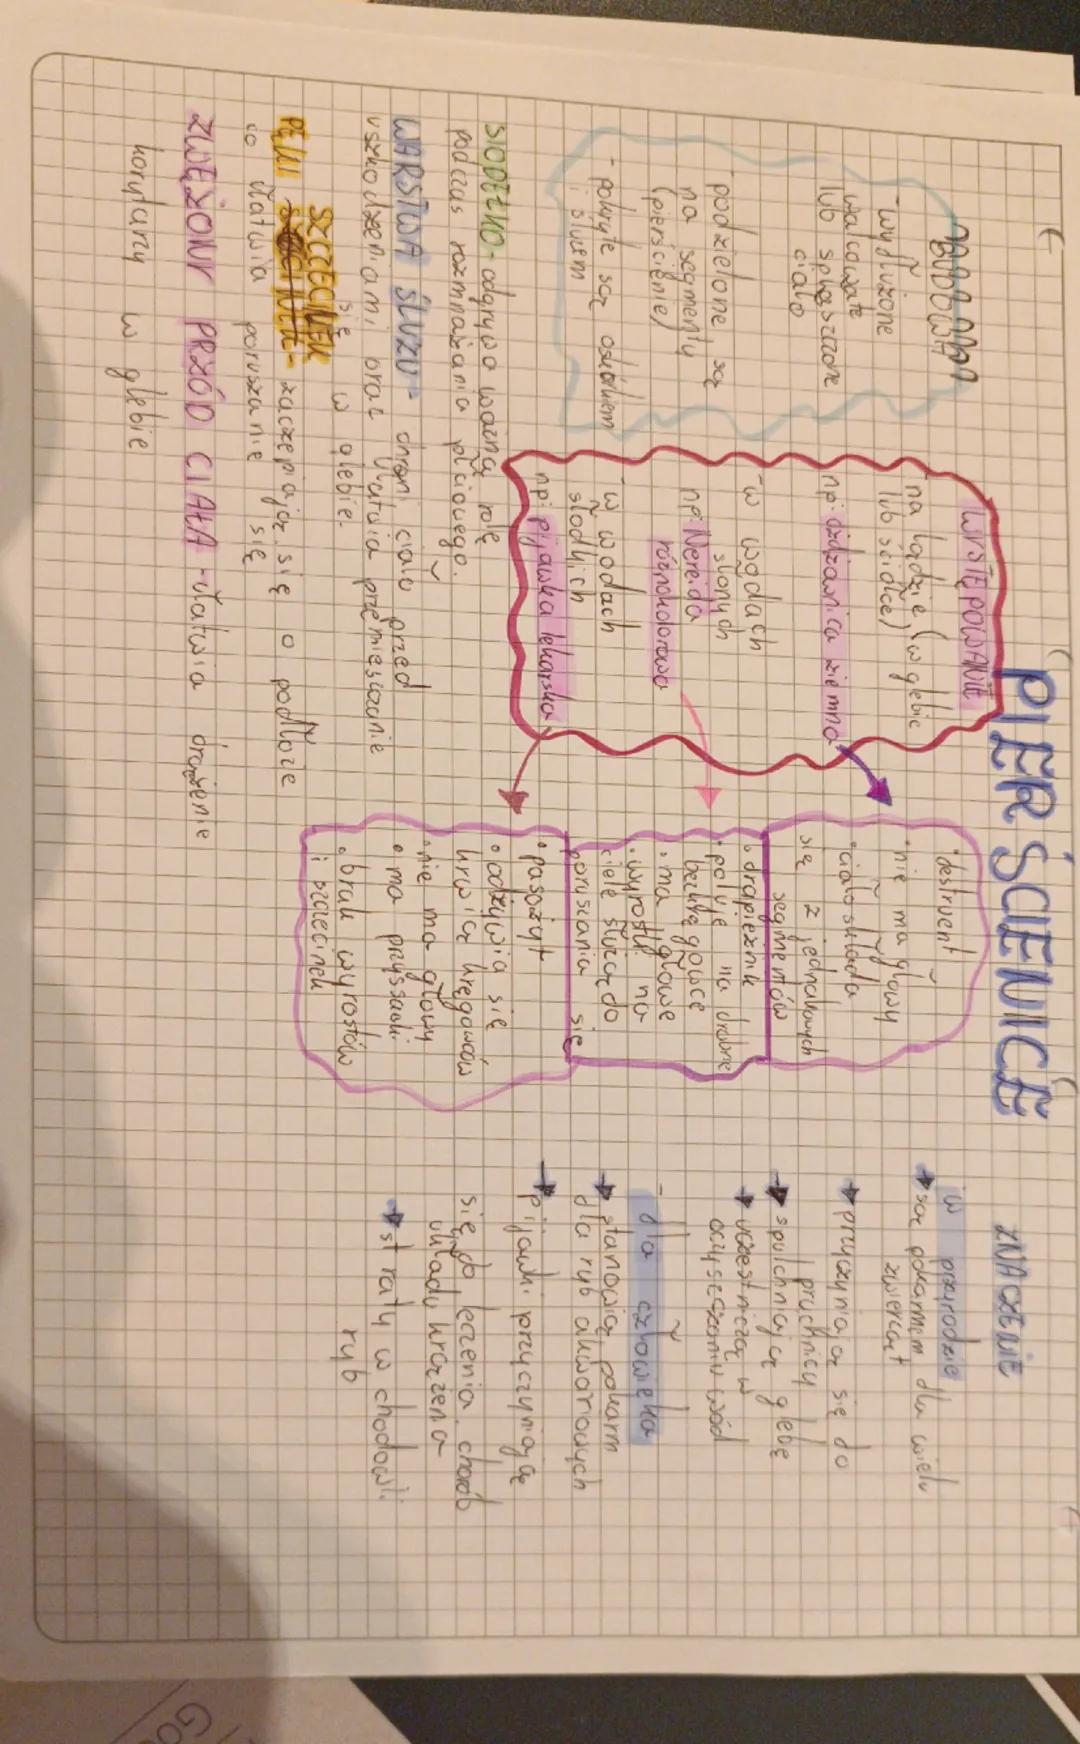 PIERŚCIENICE
BUDOWA
- wydłużone
walcowate
lub spłaszczone
ciało
- podzielone są
na segmenty
(pierścienie)
- pokryte są oskórkiem
i śluzem
WYSTĘPOWANIE
- na lądzie (w glebie
lub ściółce)
np: dżdżownica ziemna
- w wodach
słonych
np: Nereida
różnokolorowa
- w wodach
słodkich
np: pijawka lekarska
• destruent
• nie ma głowy
• ciało składa
się z jednakowych
segmentów
• drapieżnik
• poluje na drobne
bezkręgowce
• ma głowę
• wyrostki na
ciele służą do
poruszania się
• pasożyt
• odżywia się
krwią kręgowców
• nie ma głowy
• ma przyssawki
• brak wyrostków
i szczecinek
ZNACZENIE
w przyrodzie
→ są pokarmem dla wielu
zwierząt
→ przyczyniają się do
próchnicy
→ spulchniają glebę
→ uczestniczą w
oczyszczaniu wód
- dla człowieka
→ stanowią pokarm
dla ryb akwariowych
→ pijawki przyczyniają
się do leczenia chorób
układu krążenia
→ straty w chodowli
ryb
SIODEŁKO - odgrywa ważną rolę
podczas rozmnażania płciowego.
WARSTWA ŚLUZU - chroni ciało przed
uszkodzeniami oraz ułatwia przemieszczanie
się w glebie.
SZCZECINEK
PĘKI - zaczepiając się o podłoże
co ułatwia poruszanie się
ZWĘŻONY PRZÓD CIAŁA - ułatwia drążenie
korytarzy w glebie